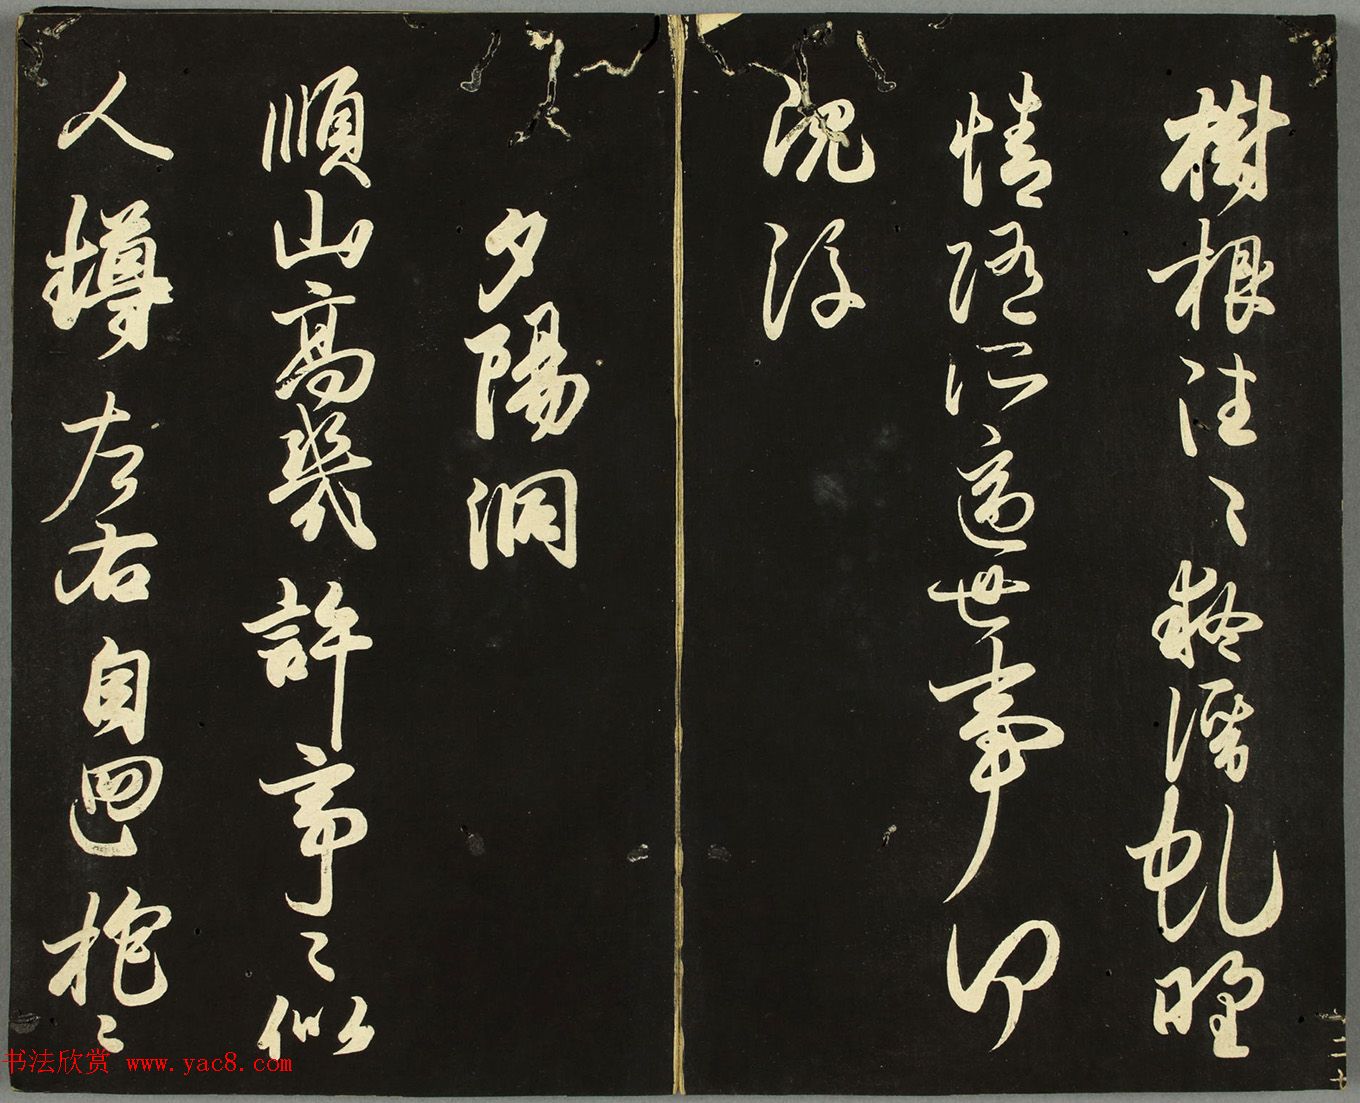 樹根往〻疑潛虬曠
情隨所適世事何
況浮
夕陽洞
順山高幾許亭〻似
人樽左右自迴抱〻
二十
书法欣赏 www.yac8.com